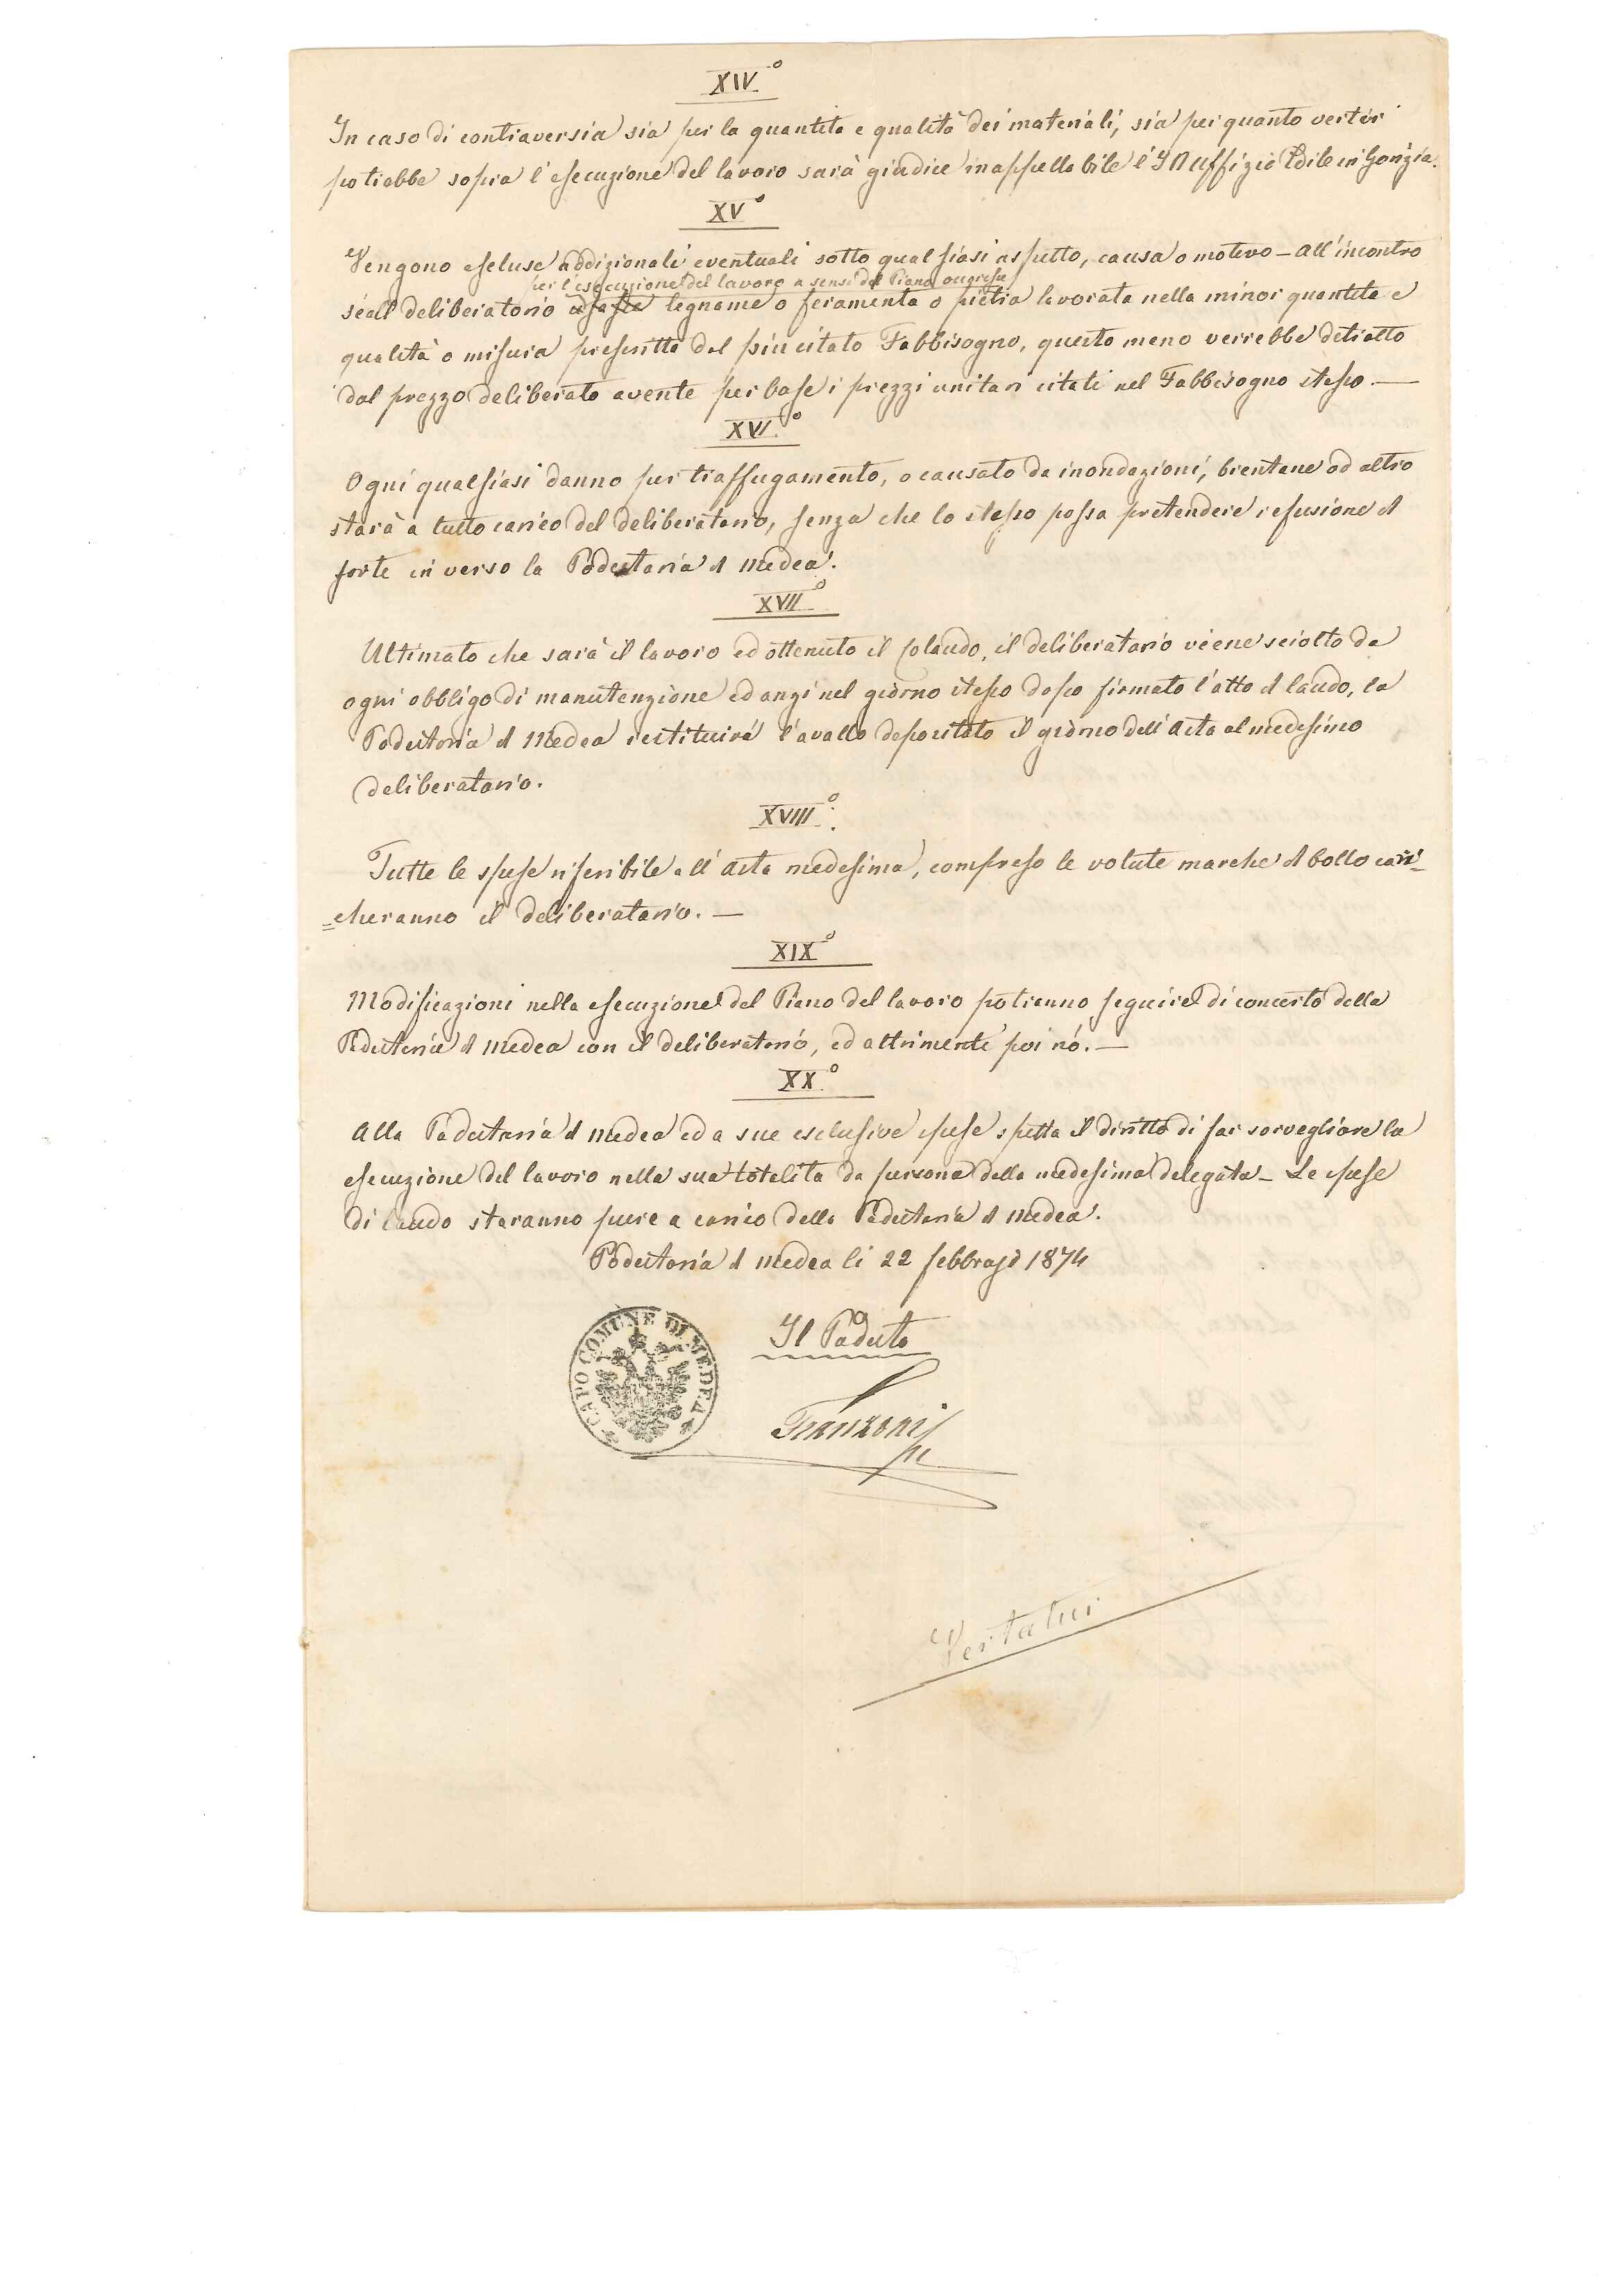 XIV.°
In caso di contraversia sia per la quantita e qualità dei materiali, sia per quanto vertir
potrebbe sopra l'esecuzione del lavoro sarà giudice inappellabile l'I R Uffizio Edile in Gorizia.
XV°
Vengono escluse addizionali eventuali sotto qualsiasi aspetto, causa o motivo – All'incontro
per l'esecuzione del lavoro a sensi del Piano occorresse
se all deliberatorio legname o feramenta o pietra lavorata nella minor quantita e
qualità o misura prescritta dal piu citato Fabbisogno, questo meno verrebbe detratto
dal prezzo deliberato avente per base i prezzi unitari citati nel Fabbisogno stesso. —
XVI.°
Ogni qualsiasi danno per traffugamento, o causato da inondazioni, brentane od altro
starà a tutto carico del deliberatario, senza che lo stesso possa pretendere refusione d
sorte in verso la Podestaria d Medea.
XVII°
Ultimato che sarà il lavoro ed ottenuto il Colaudo, il deliberatario viene sciolto da
ogni obbligo di manutenzione ed anzi nel giorno stesso dopo firmato l'atto d laudo, la
Podestaria d Medea restituirà l'avallo depositato il giorno dell'Asta al medesimo
deliberatario.
XVIII.°
Tutte le spese riferibile all'Asta medesima, compreso le volute marche d bollo cari=
=cheranno il deliberatario. —
XIX°
Modificazioni nella esecuzione del Piano del lavoro potranno seguire di concerto della
Podestaria d Medea con il deliberatario, ed altrimente poi nó. —
XX.°
Alla Podestaria d Medea ed a sue esclusive spese spetta il diritto di far sorvegliare la
esecuzione del lavoro nella sua totalita da persona dalla medesima delegata – Le spese
di laudo staranno pure a carico della Podestaria d Medea.
Podestaria d Medea li 22 febbrajo 1874
CAPO COMUNE DI MEDEA
Il Podesta
Franzoni
Vertatur